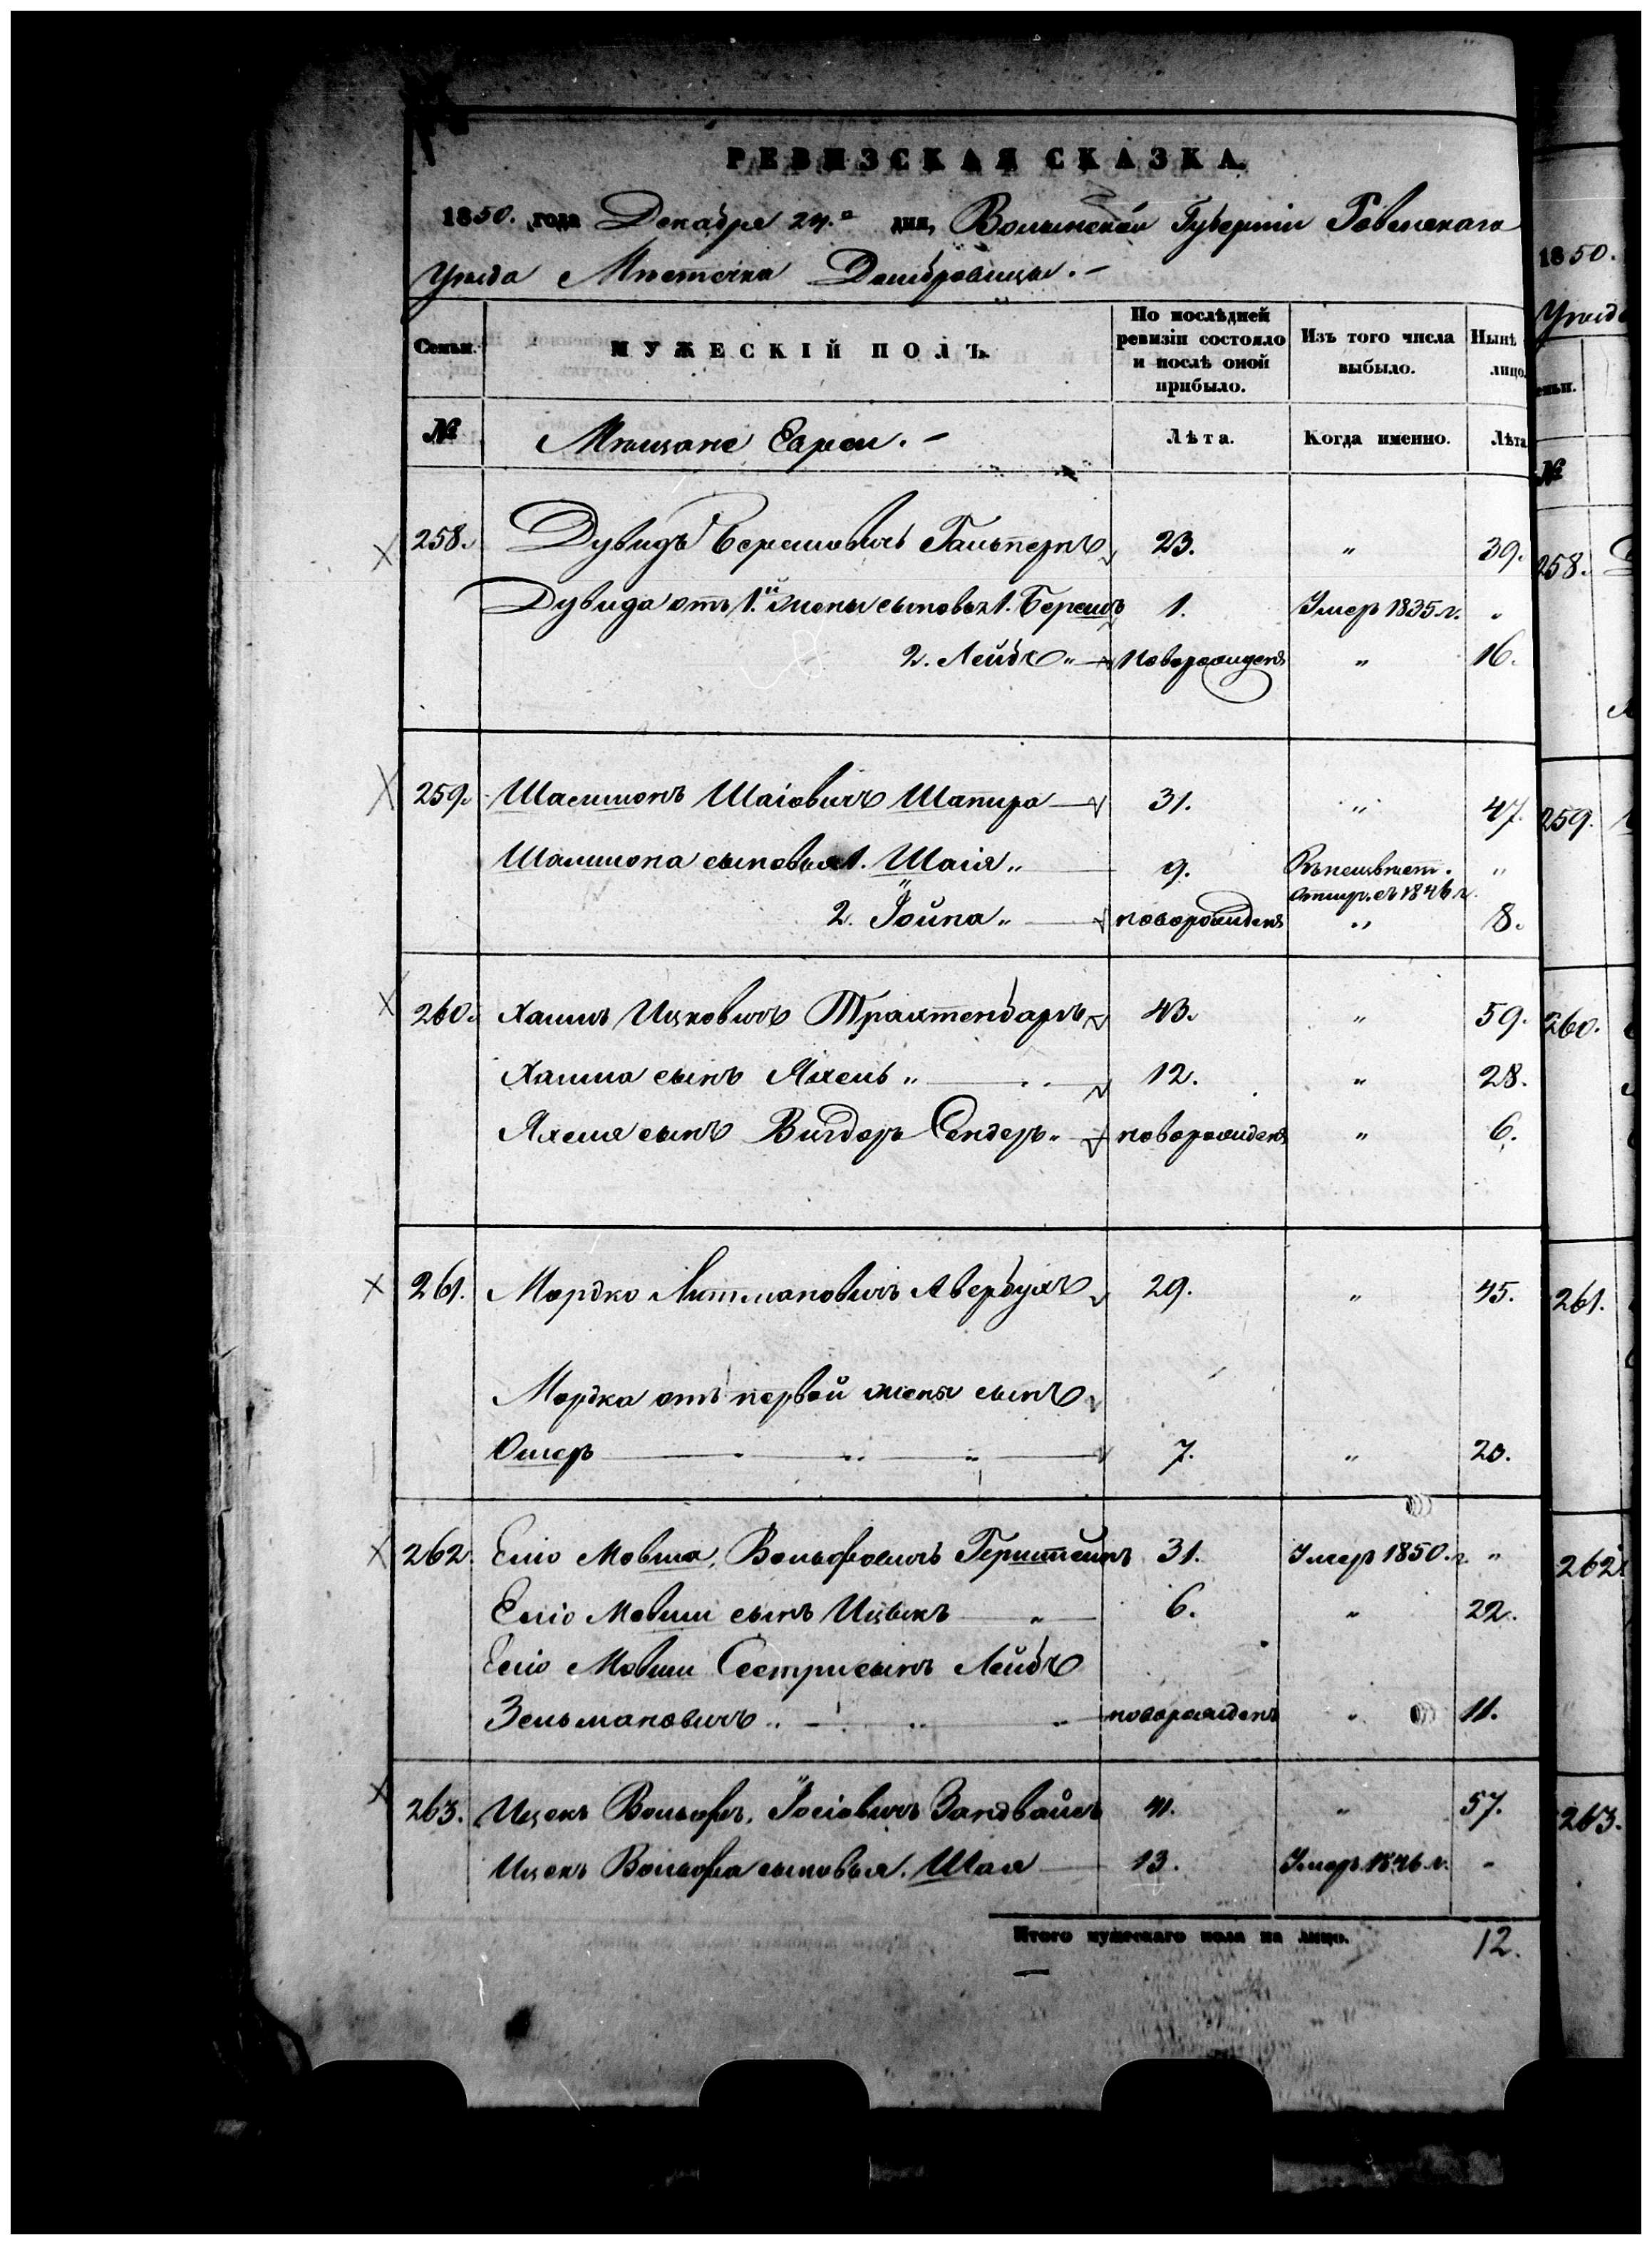 РЕВИЗСКАЯ СКАЗКА.
1850. года Декабря 24.го дня, Волынской Губерніи Ровенскаго
Уѣзда Мѣстечка Домбровицы.
Семьи. МУЖЕСКІЙ ПОЛЪ. По послѣдней ревизіи состояло и послѣ оной прибыло. Изъ того числа выбыло. Нынѣ лицо.
№ Мѣщане Евреи. Лѣта. Когда именно. Лѣта
258. Дувидъ Берковичъ Гальпернъ 23. " 39.
Дувида отъ 1.й жены сыновья 1. Берко 1. Умеръ 1835 г. "
2. Лейбъ " новорожденъ " 16.
259. Шамшонъ Шаіовичъ Шапиро 31. " 47.
Шамшона сыновья 1. Шаія " 9. Въ неизвѣст. отлуч. съ 1846 г. "
2. Іойна " новорожденъ " 8.
260. Хаимъ Ицковичъ Трахтенбаръ 43. " 59.
Хаима сынъ Яхель " 12. " 28.
Яхеля сынъ Вигдоръ Сендеръ " новорожденъ " 6.
261. Мордко Литмановичъ Авербухъ 29. " 45.
Мордка отъ первой жены сынъ
Ошеръ " " 7. " 20.
262. Еліо Мовша, Вольфовичъ Герштейнъ 31. Умеръ 1850. г. "
Еліо Мовши сынъ Ицыкъ " 6. " 22.
Еліо Мовши Сестри сынъ Лейбъ
Зельмановичъ " новорожденъ " 11.
263. Ицекъ Вольфъ, Іосіовичъ Зандвайсъ 41. " 57.
Ицекъ Вольфа сыновья. Шая 13. Умеръ 1846 г. "
Итого мужескаго пола на лицо. 12.
1850.
Уѣзд
еньи.
№
258.
259.
260.
261.
262
263.